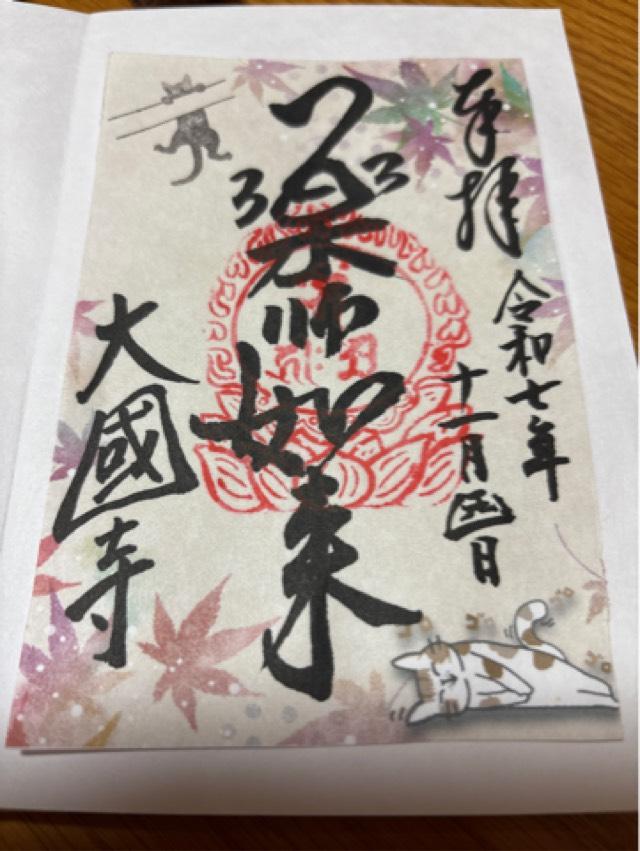 奉拝
令和七年
十一月四日
薬師如来
大國寺
ゴロ
ゴロ